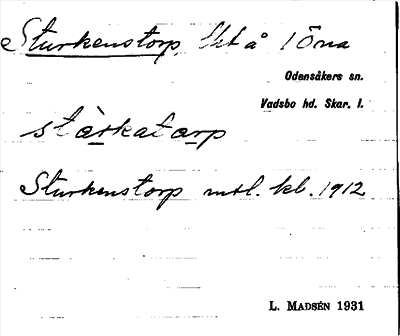 Sturkenstorp, lht å 1 Öna
Odensåkers sn.
Vadsbo hd. Skar. l.
stàrkatarp
Sturkenstorp mtl. kb. 1912
L. MADSÉN 1931